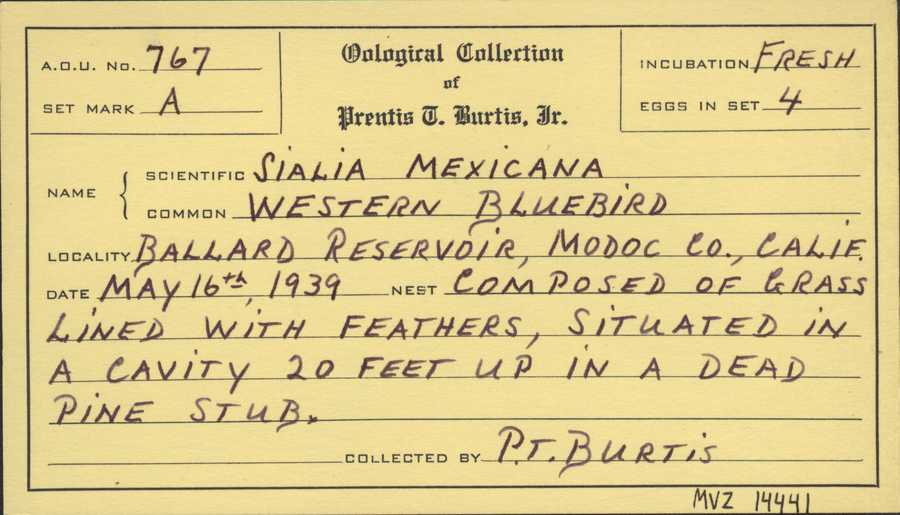 A.O.U. No. 767
SET MARK A
Oological Collection
of
Prentis T. Burtis, Jr.
INCUBATION FRESH
EGGS IN SET 4
NAME { SCIENTIFIC SIALIA MEXICANA
COMMON WESTERN BLUEBIRD
LOCALITY BALLARD RESERVOIR, MODOC CO., CALIF.
DATE MAY 16th, 1939 NEST COMPOSED OF GRASS
LINED WITH FEATHERS, SITUATED IN
A CAVITY 20 FEET UP IN A DEAD
PINE STUB.
COLLECTED BY P.T. BURTIS
MVZ 14441